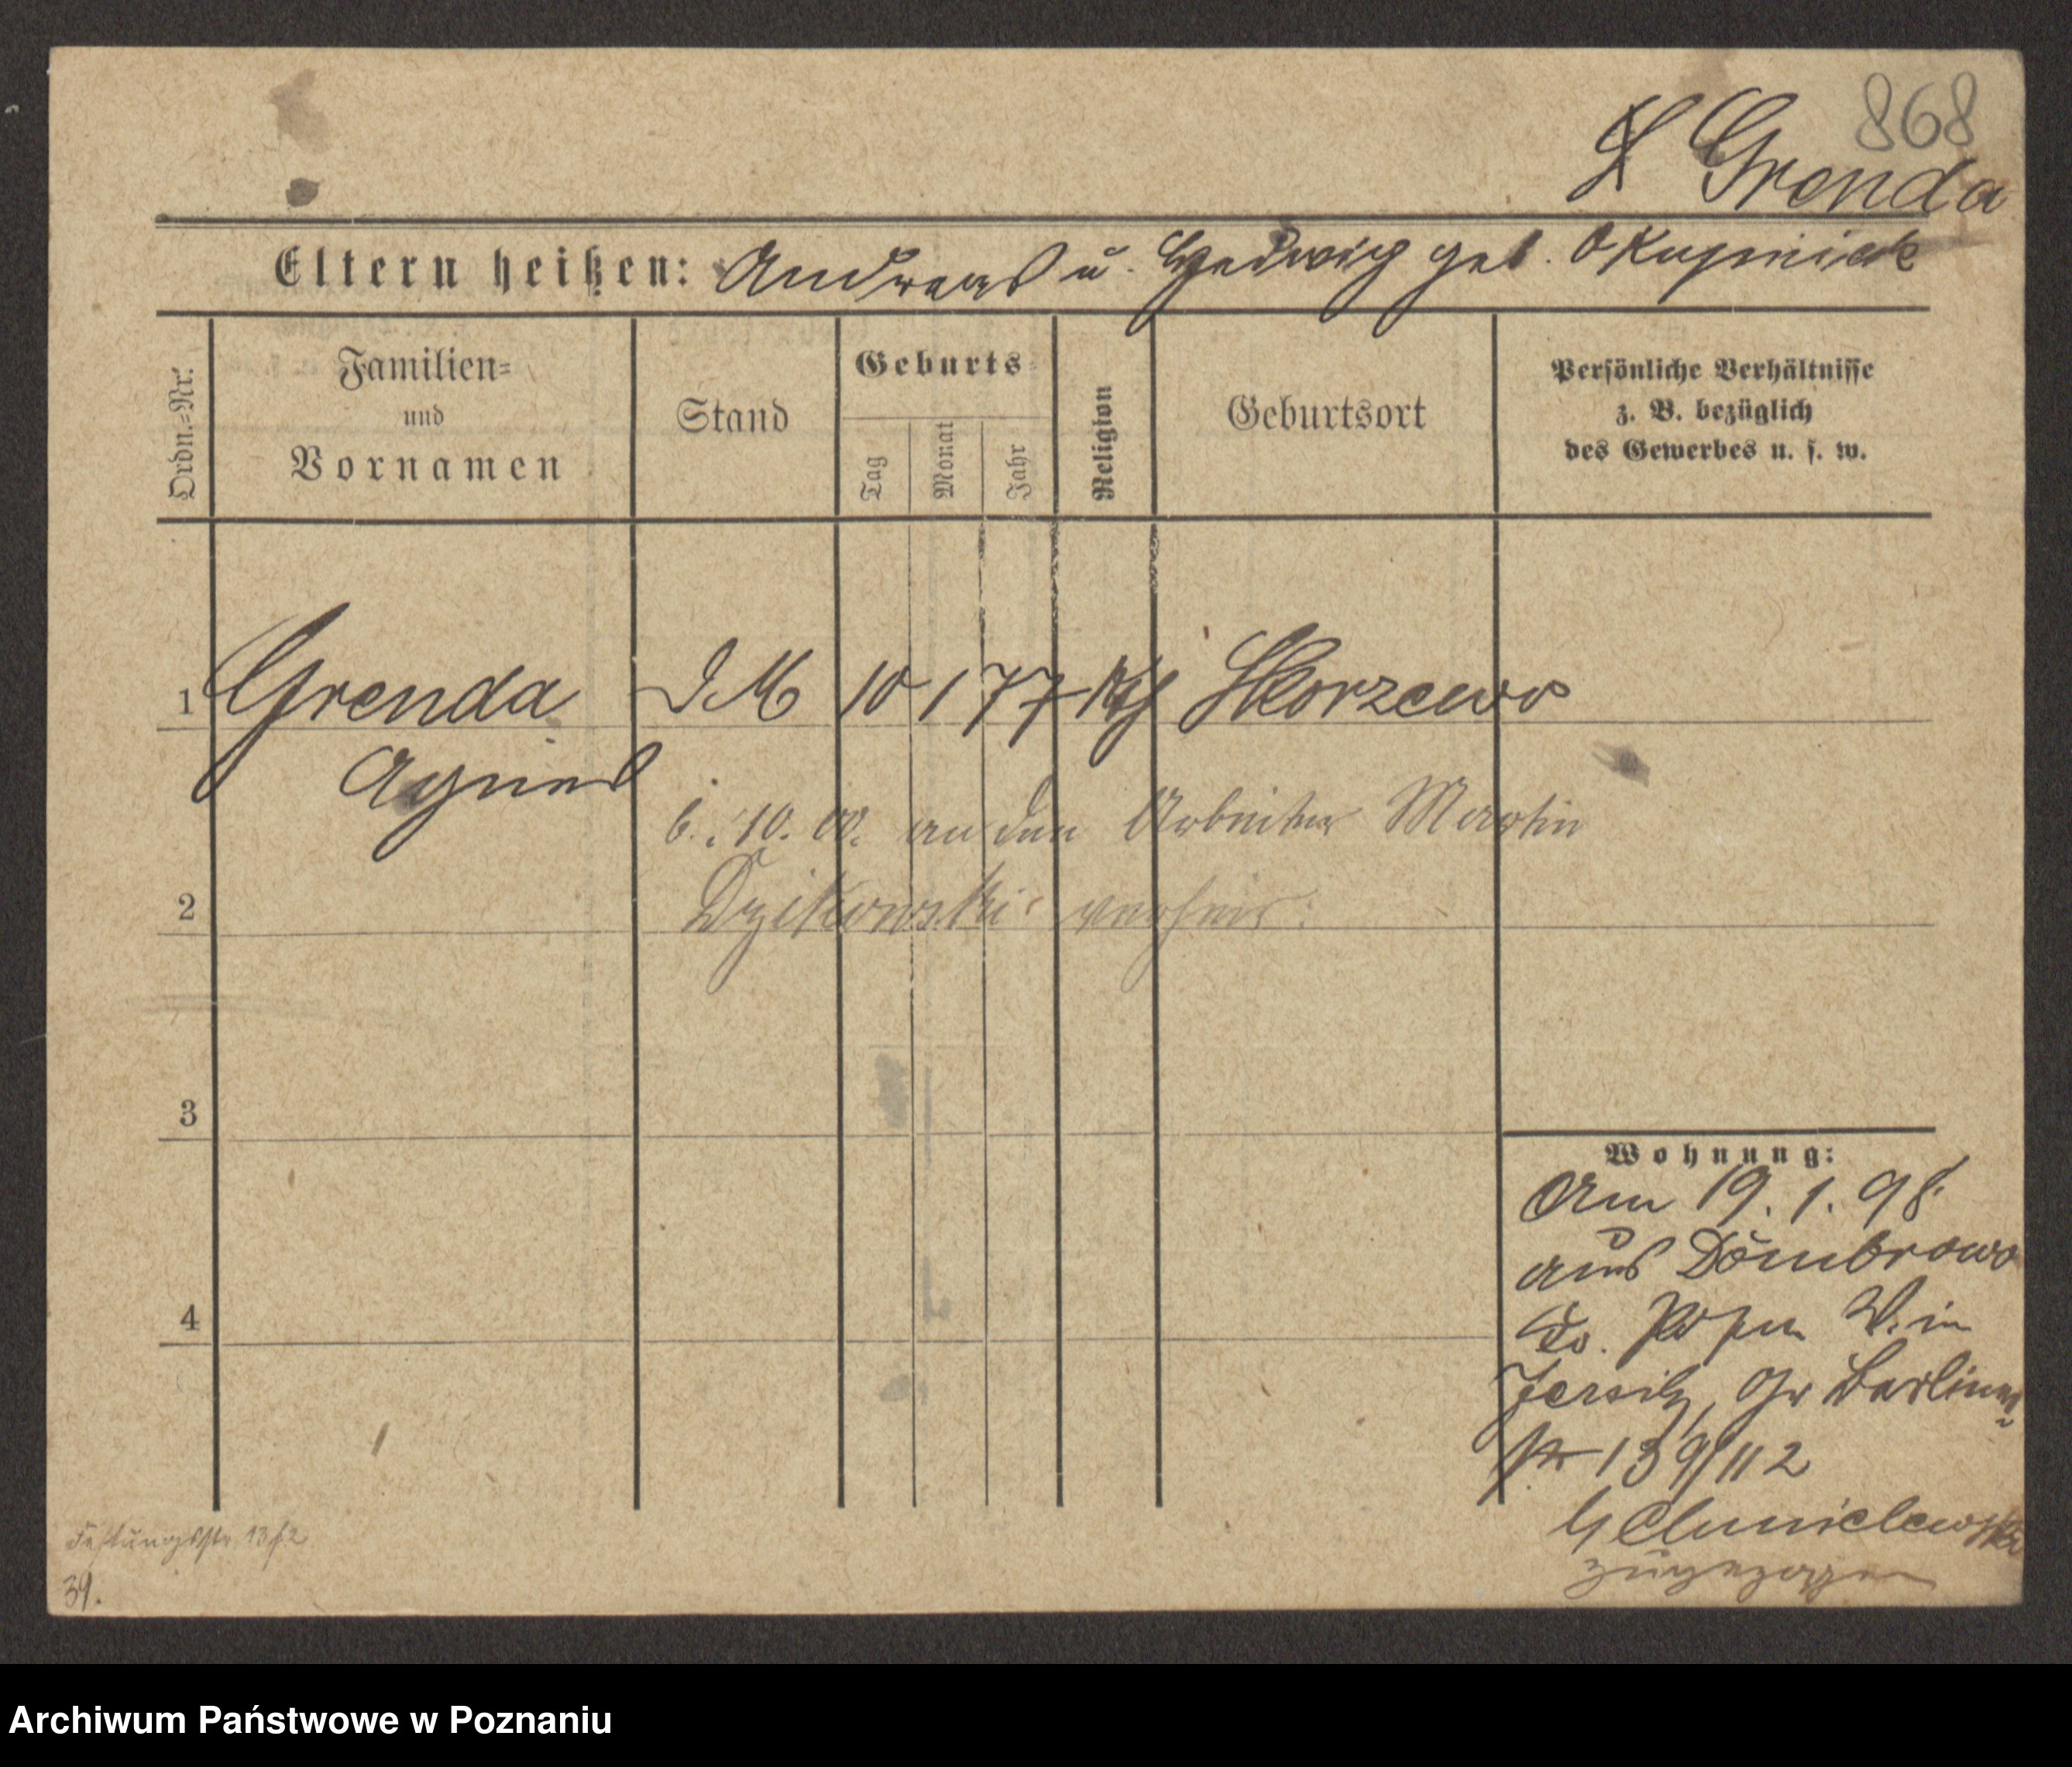 868
Grenda
Eltern heißen: Andreas u. Hedwig geb. Okupniak
Ordn.=Nr.
Familien=
und
Vornamen
Stand
Geburts
Tag
Monat
Jahr
Religion
Geburtsort
Persönliche Verhältnisse
z. B. bezüglich
des Gewerbes u. s. w.
1 Grenda D.M 10 1 77 kth Skorzewo
Agnes
6. 10. 00. an den Arbeiter Martin
2 Dzikowski verheir.
3
4
Wohnung:
Am 19. 1. 98.
aus Dombrowo
Posen W. in
Jersitz, Gr Berliner
str 139/112
Chmielewski
zugezogen
Festungsstr. 13
39.
Archiwum Państwowe w Poznaniu